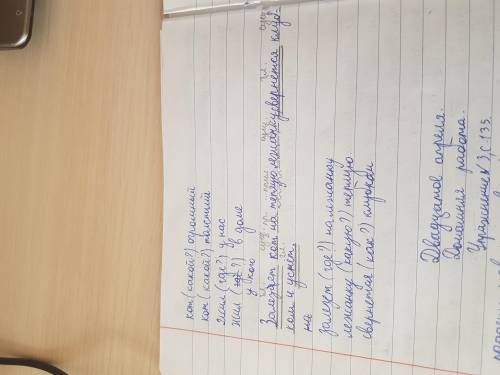 кот (какой?) огромный
кот (какой?) толстый
жил (где?) у нас
жил (где?) в доме
у кого
Залезает кот на теплую лежанку, свернется клуб-
ком и уснет.
на
залезет (где?) на лежанку
лежанку (какую?) теплую.
свернется (как?)
Двадцатое апреля.
Домашняя работа.
Упражнение 3, с. 133